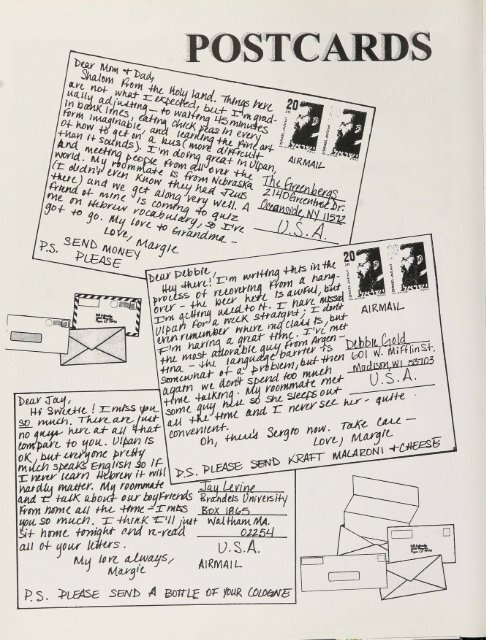 POSTCARDS
Dear Mom & Dad,
Shalom from the Holy Land. Things here
are not what I expected, but I'm grad-
ually adjusting - to waiting 45 minutes
in bank lines, eating chick peas in every
form imaginable, and learning the fine art
of how to get on a bus (more difficult
than it sounds). I'm doing great in Ulpan,
and meeting people from all over the
world. My roommate is from Nebraska
(I didn't even know they had Jews
there) and we get along very well. A
friend of mine is coming to quiz
me on Hebrew vocabulary, so I've
got to go. My love to Grandma -
Love, Margie
P.S. SEND MONEY
PLEASE
20
AIRMAIL
The Greenbergs
2140 Greentree Dr.
Oceanside, NY 11572
U.S.A.
Dear Debbie,
Hey there! I'm writing this in the
process of recovering from a hang-
over - the beer here is awful, but
I'm getting used to it. I have missed
Ulpan for a week straight; I don't
even remember where my class is, but
I'm having a great time. I've met
the most adorable guy from Argen-
tina - the language barrier is
somewhat of a problem, but then
again we don't spend too much
time talking. My roommate met
some guy here so she sleeps out
all the time and I never see her - quite
convenient.
Oh, there's Sergio now. Take care -
Love, Margie
P.S. PLEASE SEND KRAFT MACARONI & CHEESE
20
AIRMAIL
Debbie Gold
601 W. Mifflin St.
Madison, WI 53703
U.S.A.
Dear Jay,
Hi Sweetie! I miss you
so much. There are just
no guys here at all that
compare to you. Ulpan is
OK, but everyone pretty
much speaks English so if
I never learn Hebrew it will
hardly matter. My roommate
and I talk about our boyfriends
from home all the time - I miss
you so much. I think I'll just
sit home tonight and re-read
all of your letters.
My love always,
Margie
P.S. PLEASE SEND A BOTTLE OF YOUR COLOGNE
Jay Levine
Brandeis University
BOX 1865
Waltham MA.
02254
U.S.A.
AIRMAIL